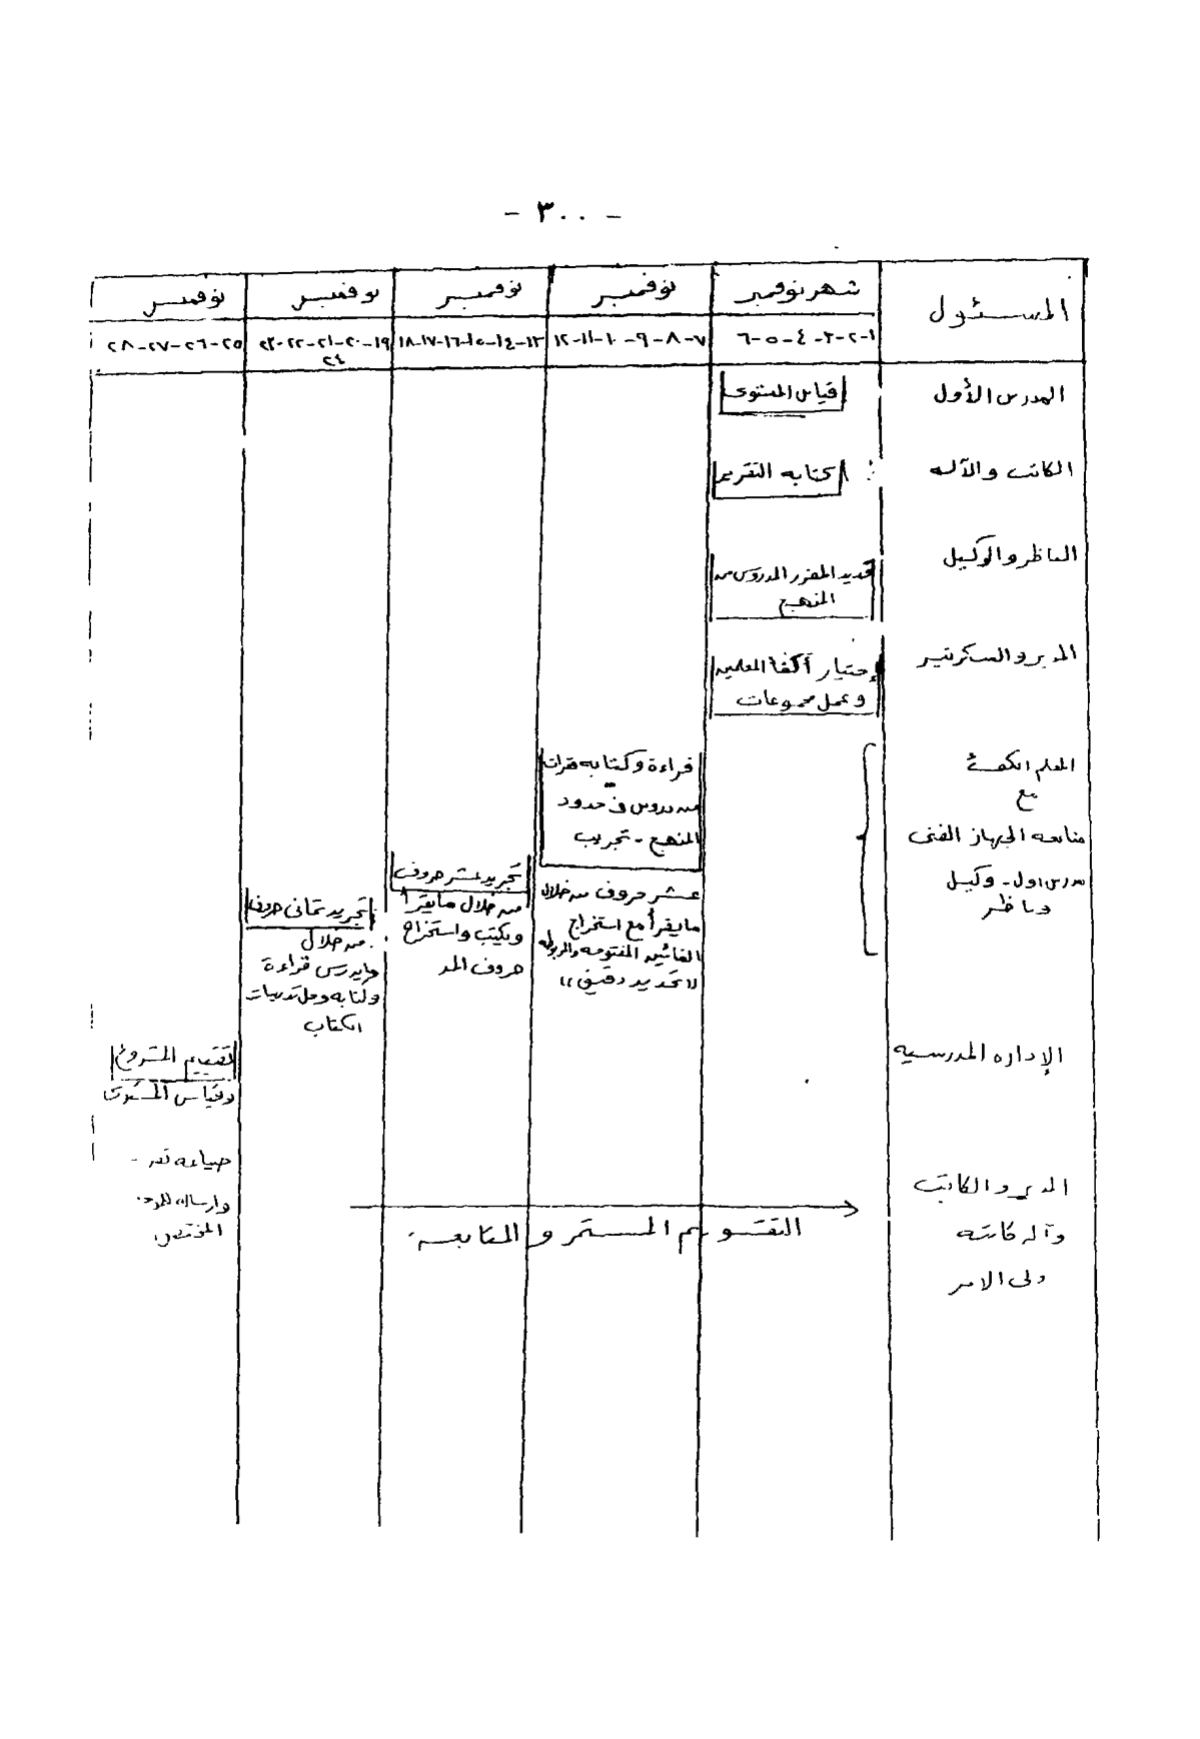 - ٣٠٠ -
المسئول
شهر نوفمبر
نوفمبر
نوفمبر
نوفمبر
نوفمبر
١-٢-٣-٤-٥-٦
٧-٨-٩-١٠-١١-١٢
١٣-١٤-١٥-١٦-١٧-١٨
١٩-٢٠-٢١-٢٢-٢٣
٢٤
٢٥-٢٦-٢٧-٢٨
المدرس الأول
قياس المستوى
الكاتب والآله
كتابه التقرير
الناظر والوكيل
تحديد المقرر المدروس من
المنهج
المدير والسكرتير
إختيار أكفأ المعلمين
وعمل مجموعات
المعلم الكفئ
مع
متابعه الجهاز الفنى
مدرس اول - وكيل
وناظر
قراءة وكتابه فقرات
من دروس فى حدود
المنهج - تجريب
عشر حروف من خلال
ما يقرأ مع استخراج
المفتوحه والمربوطه
"تحديد دقيق"
تجريد عشر حروف
من خلال ما يقرأ
ويكتب واستخراج
حروف المد
تجريد ثمانى حروف
من خلال
ما يدرس قراءة
وكتابه وحل تدريبات
الكتاب
الإداره المدرسيه
تقييم المشروع
وقياس المستوى
المدير والكاتب
وآله كاتبه
ولى الامر
صياغه
وارساله
المختص
التقويم المستمر والمتابعه